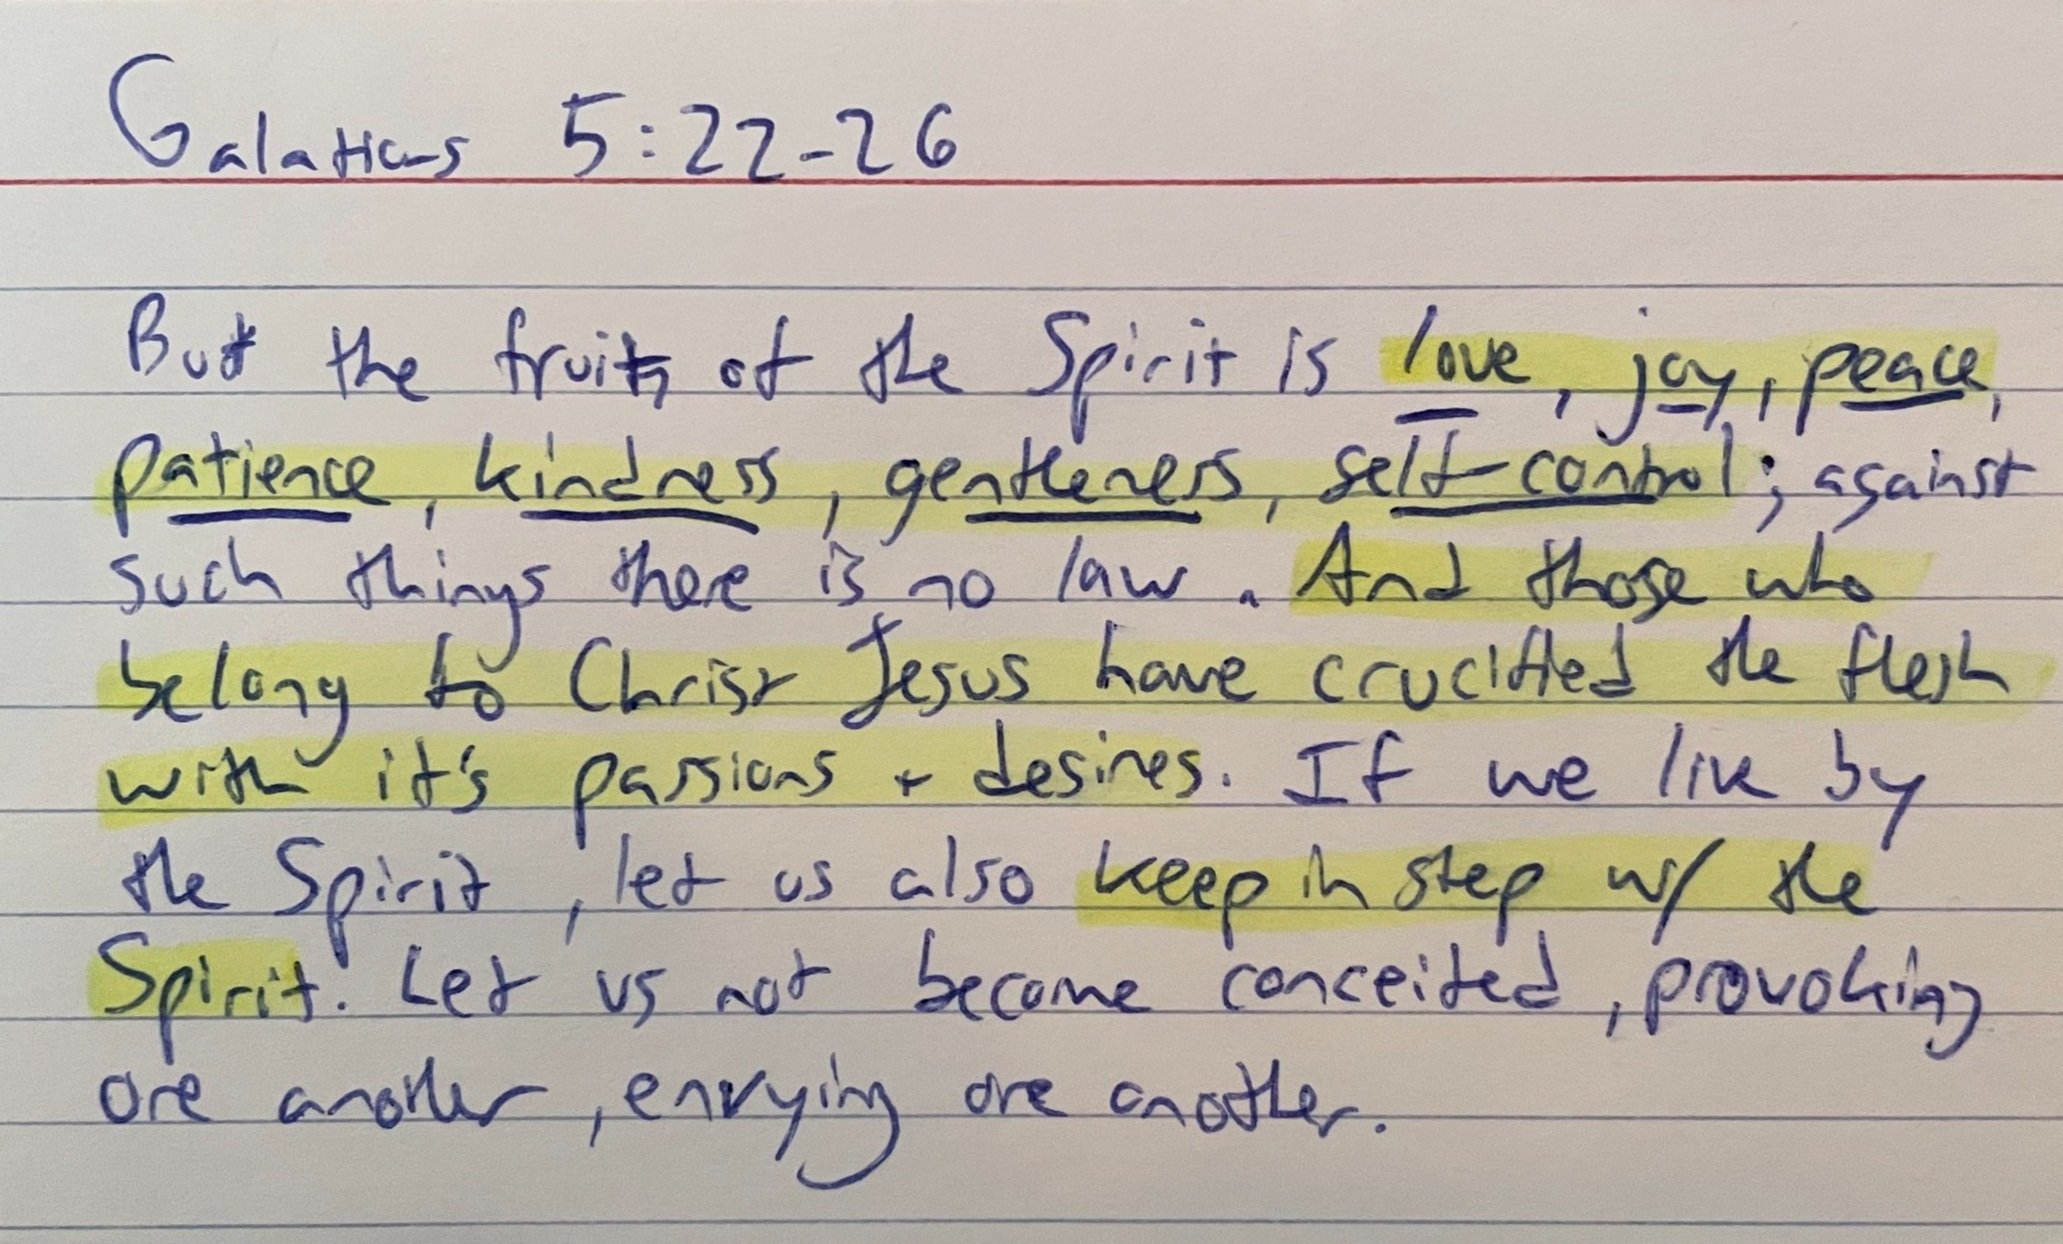 Galatians 5:22-26
But the fruits of the Spirit is love, joy, peace,
patience, kindness, gentleness, self-control; against
such things there is no law. And those who
belong to Christ Jesus have crucified the flesh
with it's passions + desires. If we live by
the Spirit, let us also keep in step w/ the
Spirit. Let us not become conceited, provoking
one another, envying one another.